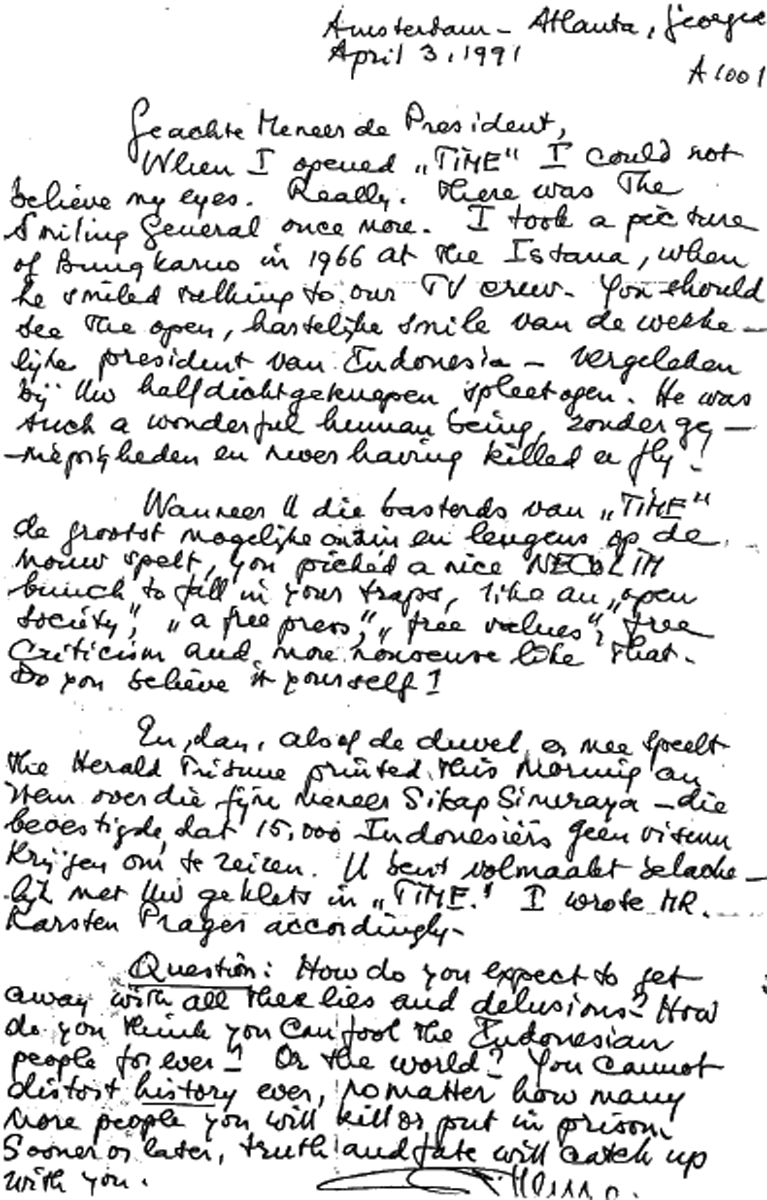 Amsterdam - Atlanta, Georgia
April 3, 1991
A 1001
Geachte Meneer de President,
When I opened „TIME" I could not
believe my eyes. Really. There was The
Smiling General once more. I took a picture
of Bung Karno in 1966 at the Istana, when
he smiled talking to our TV crew. You should
see the open, hartelijke smile van de werke-
lijke president van Indonesia - vergeleken
bij Uw half dichtgeknepen spleetogen. He was
such a wonderful human being, zonder ge-
-niepigheden en never having killed a fly!
Wanneer U die basterds van „TIME"
de grootst mogelijke onzin en leugens op de
mouw spelt, you picked a nice NECOLIM
bunch to fall in your traps, like an „open
society", „a free press", „free values", free
Criticism and more nonsense like that.
Do you believe it yourself!
En, dan, alsof de duvel er mee speelt
the Herald Tribune printed this morning an
item over die fijne meneer Sikap Simuraya - die
bevestigde, dat 15,000 Indonesiërs geen visum
krijgen om te reizen. U bent volmaakt belache-
lijk met Uw geklets in „TIME." I wrote MR.
Karsten Prager accordingly-
Question: How do you expect to get
away with all these lies and delusions? How
do you think you can fool the Indonesian
people for ever! Or the world? You cannot
distort history ever, no matter how many
more people you will kill or put in prison.
Sooner or later, truth and fate will catch up
with you.